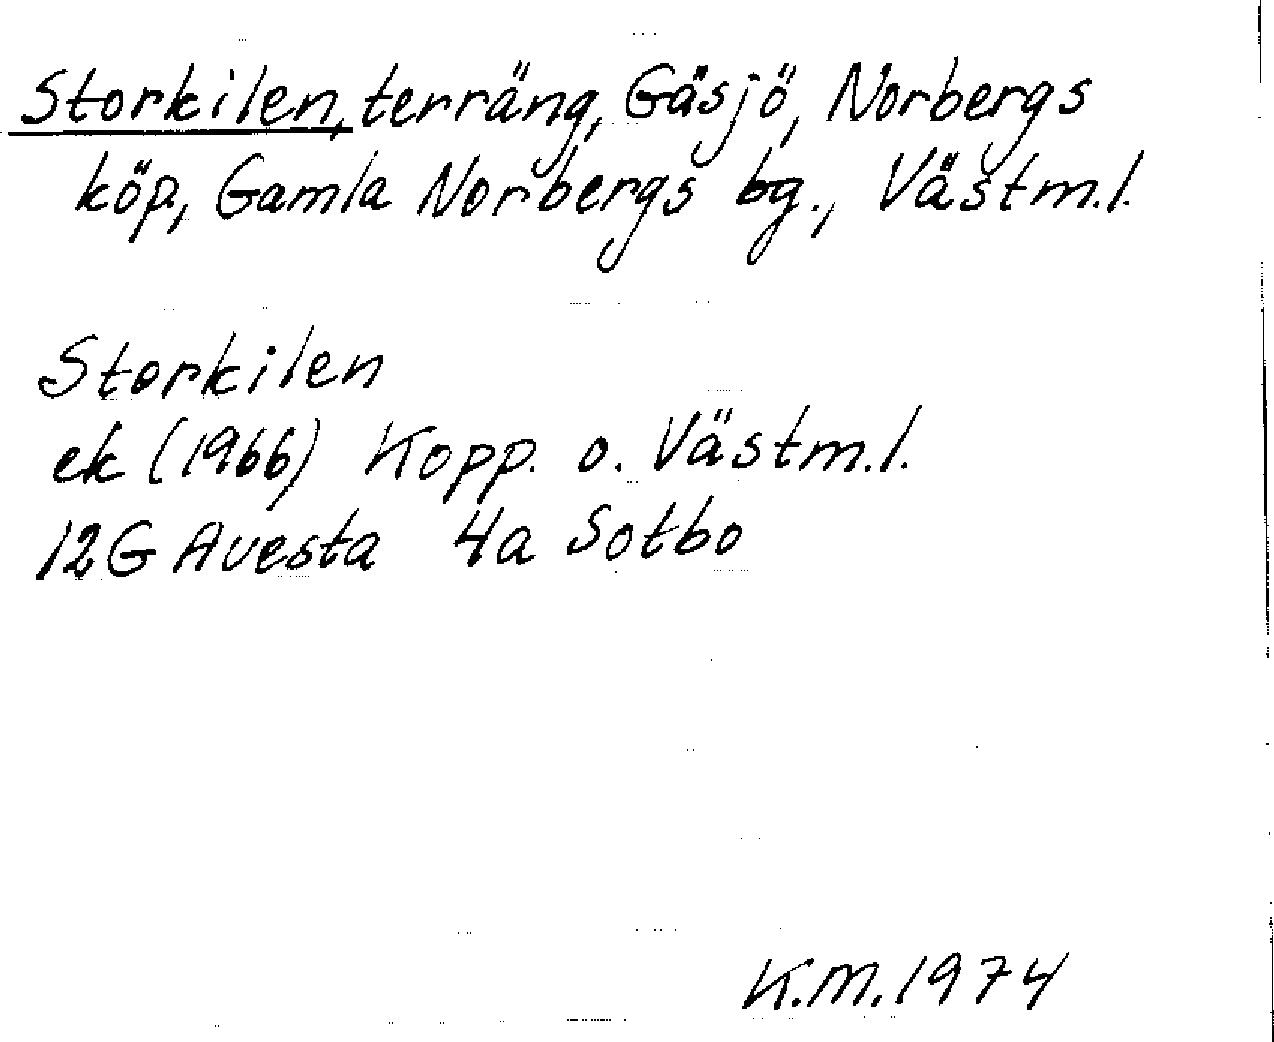 Storkilen, terräng, Gäsjö, Norbergs
köp, Gamla Norbergs bg., Västm.l.
Storkilen
ek (1966) Kopp. o. Västm.l.
12G Avesta 4a Sotbo
K.M.1974